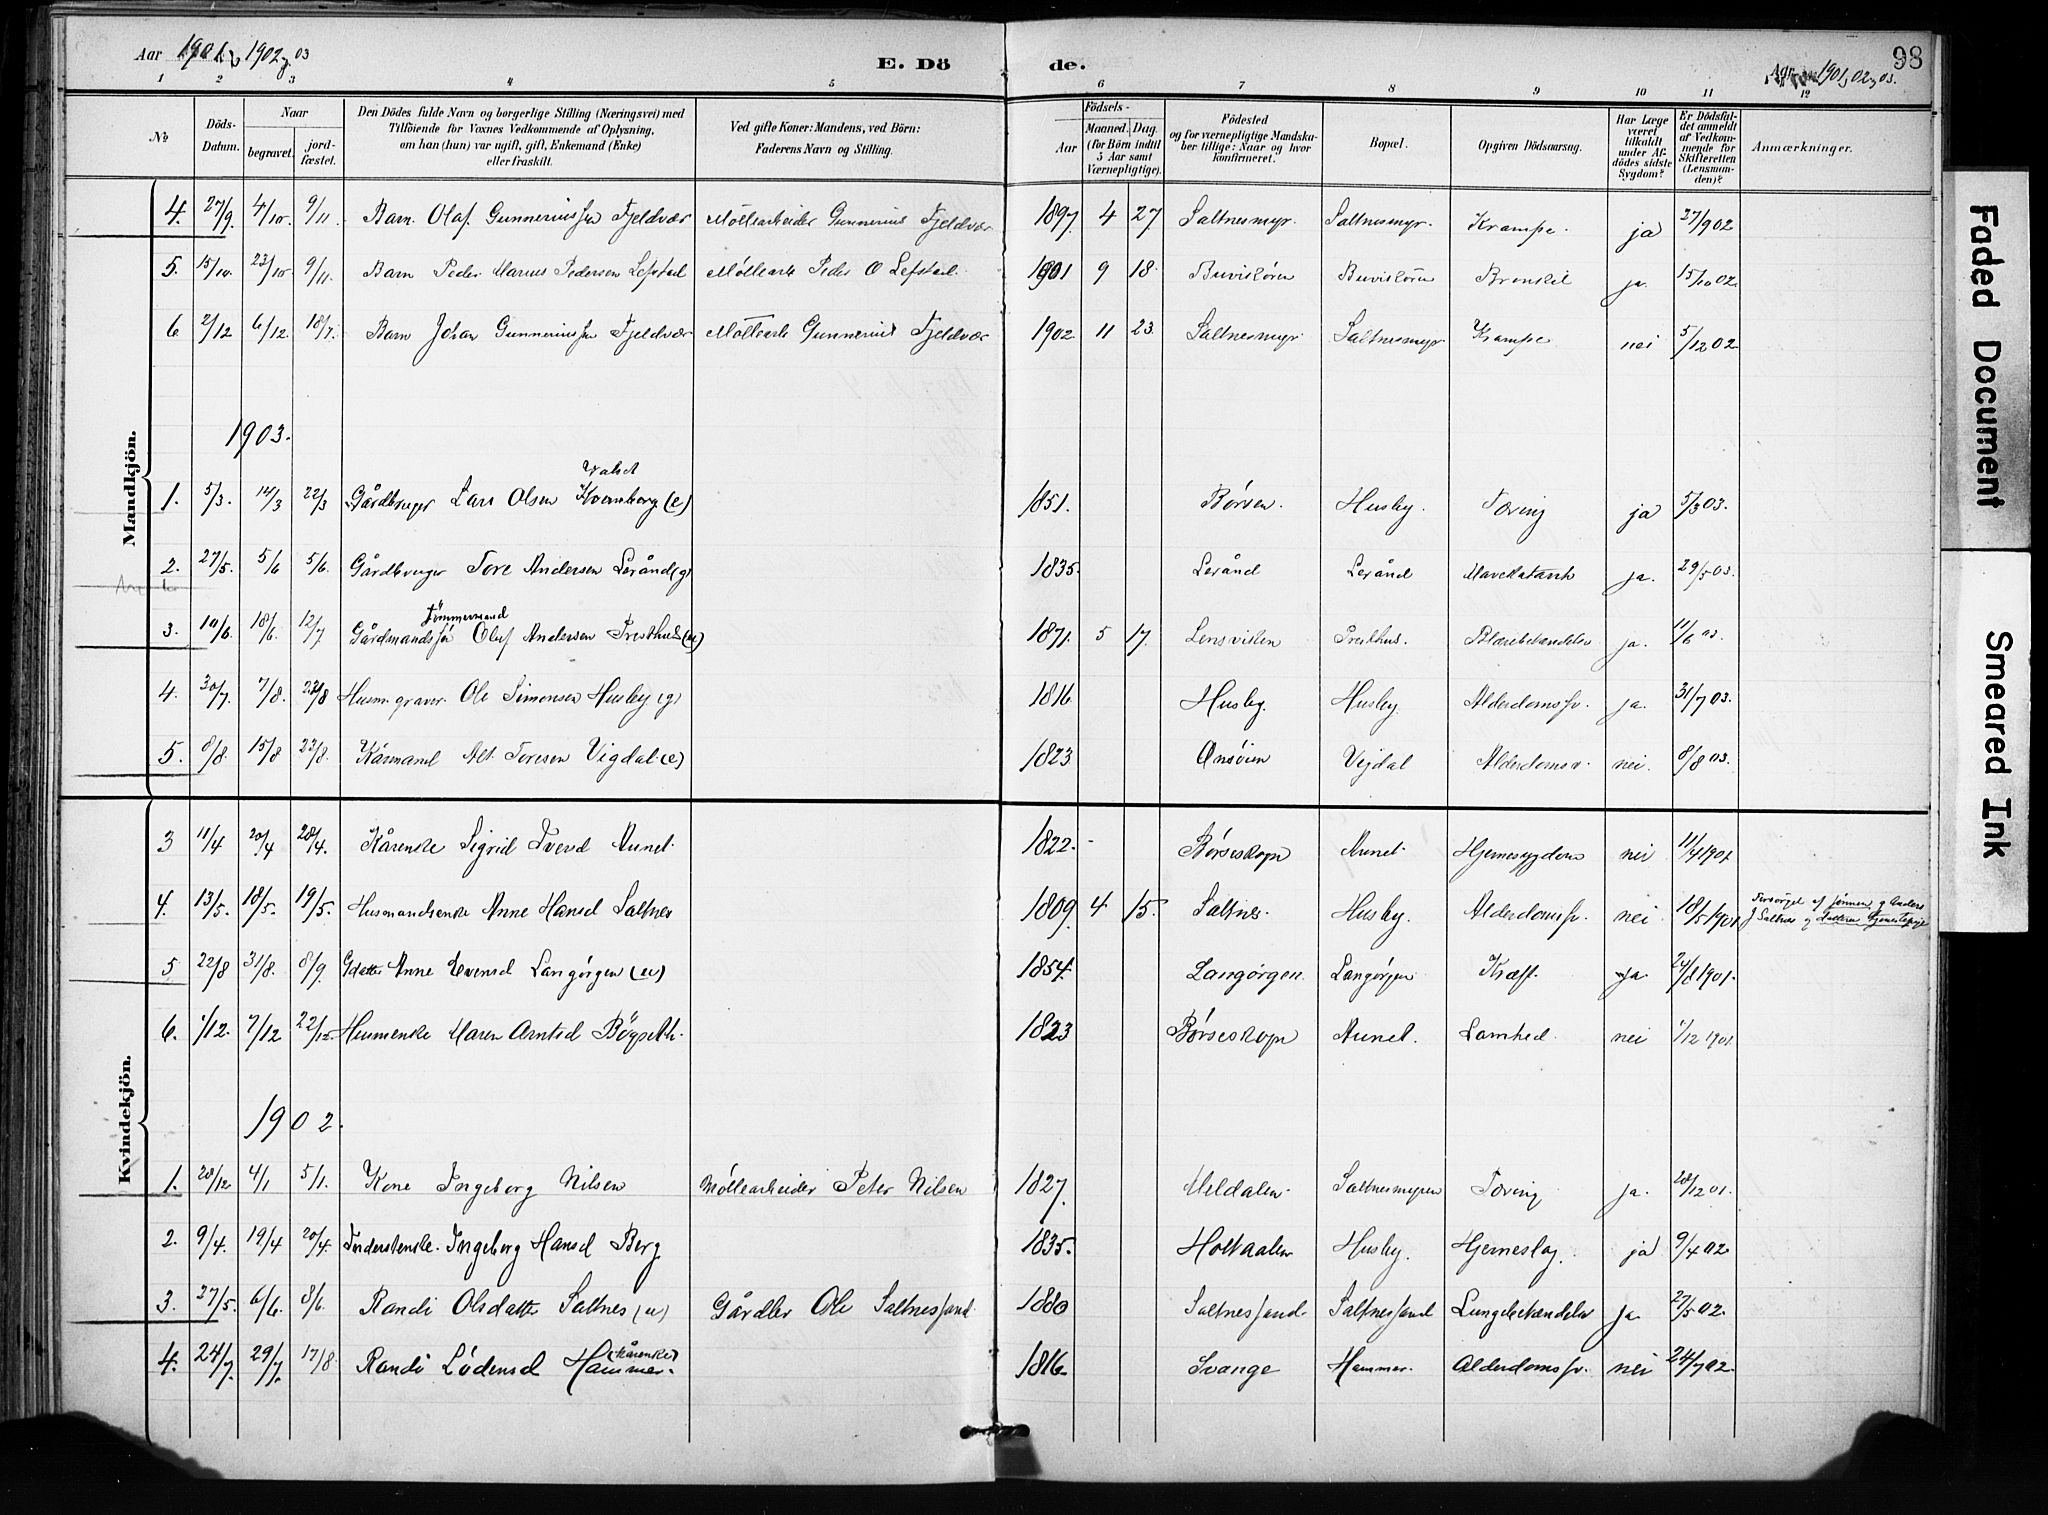 Aar 1901, 1902 og 03
E. Dö de.
98
Aar 1901, 02 og 03.
1 2 3 4 5 6 7 8 9 10 11 12
No
Döds-Datum.
Naar
begravet.
jord-fæstet.
Den Dödes fulde Navn og borgerlige Stilling (Næringsvei) med Tilföiende for Voxnes Vedkommende af Oplysning, om han (hun) var ugift, gift, Enkemand (Enke) eller fraskilt.
Ved gifte Koner: Mandens, ved Börn: Faderens Navn og Stilling.
Födsels-
Aar
Maaned. Dag. (for Börn indtil 5 Aar samt Værnepligtige).
Födested og for værnepligtige Mandskaber tillige: Naar og hvor konfirmeret.
Bopæl.
Opgiven Dödsaarsag.
Har Læge været tilkaldt under Afdödes sidste Sygdom?
Er Dödsfaldet anmeldt af Vedkommende for Skifteretten (Lensmanden)?
Anmærkninger.
Mandkjön.
4. 27/9. 4/10. 9/11 Barn Olaf Gunneriussen Fjeldvær Möllearbeider Gunnerius Fjeldvær 1897 4 27 Saltnesmyr. Saltnesmyr. Krampe. ja 27/9 02
5. 15/10. 23/10. 9/11. Barn Peder Marius Pedersen Lefstad Möllearb Peder O Lefstad. 1901 9 18. Buvikören Buvikören Bronkit ja. 15/10 02
6. 2/12 6/12. 18/7. Barn Johan Gunneriussen Fjeldvær Möllearb Gunnerius Fjeldvær 1902 11 23. Saltnesmyr. Saltnesmyr Krampe nei 5/12 02
1903.
Valset
1. 5/3. 14/3 22/3 Gårdbruger Lars Olsen Kvernberg (e) 1851. Börsen. Husby. Tæring ja 5/3 03.
2. 27/5. 5/6 5/6. Gårdbruger Tore Andersen Leränd (g) 1835. Leränd Leränd Mavekatarrh ja. 29/5 03.
Tömmermand
3. 10/6. 18/6. 12/7 Gårdmandssön Oluf Andersen Presthus (u) 1871. 5 17. Lensviken Presthus. Blærebetændelse ja. 11/6 03.
4. 30/7. 7/8. 23/8 Husm. graver. Ole Simonsen Husby (g) 1816 Husby. Husby. Alderdomssv. ja. 31/7 03.
5. 8/8. 15/8 23/8. Kårmand Alt. Toresen Vigdal (e) 1823 Onsöien Vigdal Alderdomsv. nei. 8/8 03.
Kvindekjön.
3 11/4 20/4 28/4. Kårenke Sigrid Iversd Aunet. 1822. - Börseskogn Aunet. Hjernesygdom nei 11/4 1901
4. 13/5. 18/5. 19/5. Husmandsenke Anne Hansd Saltnes 1809 4 15. Saltnes. Husby. Alderdomssv. nei 18/5 1901 Forsörget af sönnen og Anders J Saltnes og
5 22/8 31/8. 8/9. Gdatter Anne Evensd Langörgen (u) 1854. Langörgen. Langörgen Kræft. ja. 24/8 1901.
6. 1/12. 7/12 22/12. Husmenke Maren Arntsd Bögseth. 1823 Börseskogn Aunet. Lamhed. nei 1/12 1901
1902.
1. 28/12 4/1 5/1. Kone Ingeborg Nilsen Möllearbeider Peter Nilsen 1827. Meldalen. Saltnesmyren Tæring ja. 28/12 01.
2. 9/4. 19/4 20/4. Inderstenke. Ingeborg Hansd Berg 1835. Holtaalen Husby. Hjerneslag. ja 9/4 02.
3. 27/5. 6/6. 8/6. Randi Olsdatter Saltnes (u) Gårdbr Ole Saltnessand 1880 Saltnessand. Saltnessand Lungebetændelse ja. 27/5 02.
(kårenke)
4. 24/7. 29/7. 17/8. Randi Lödensd Hammer. 1816. Svange Hammer. Alderdomssv. nei 24/7 02.
Faded Document
Smeared Ink